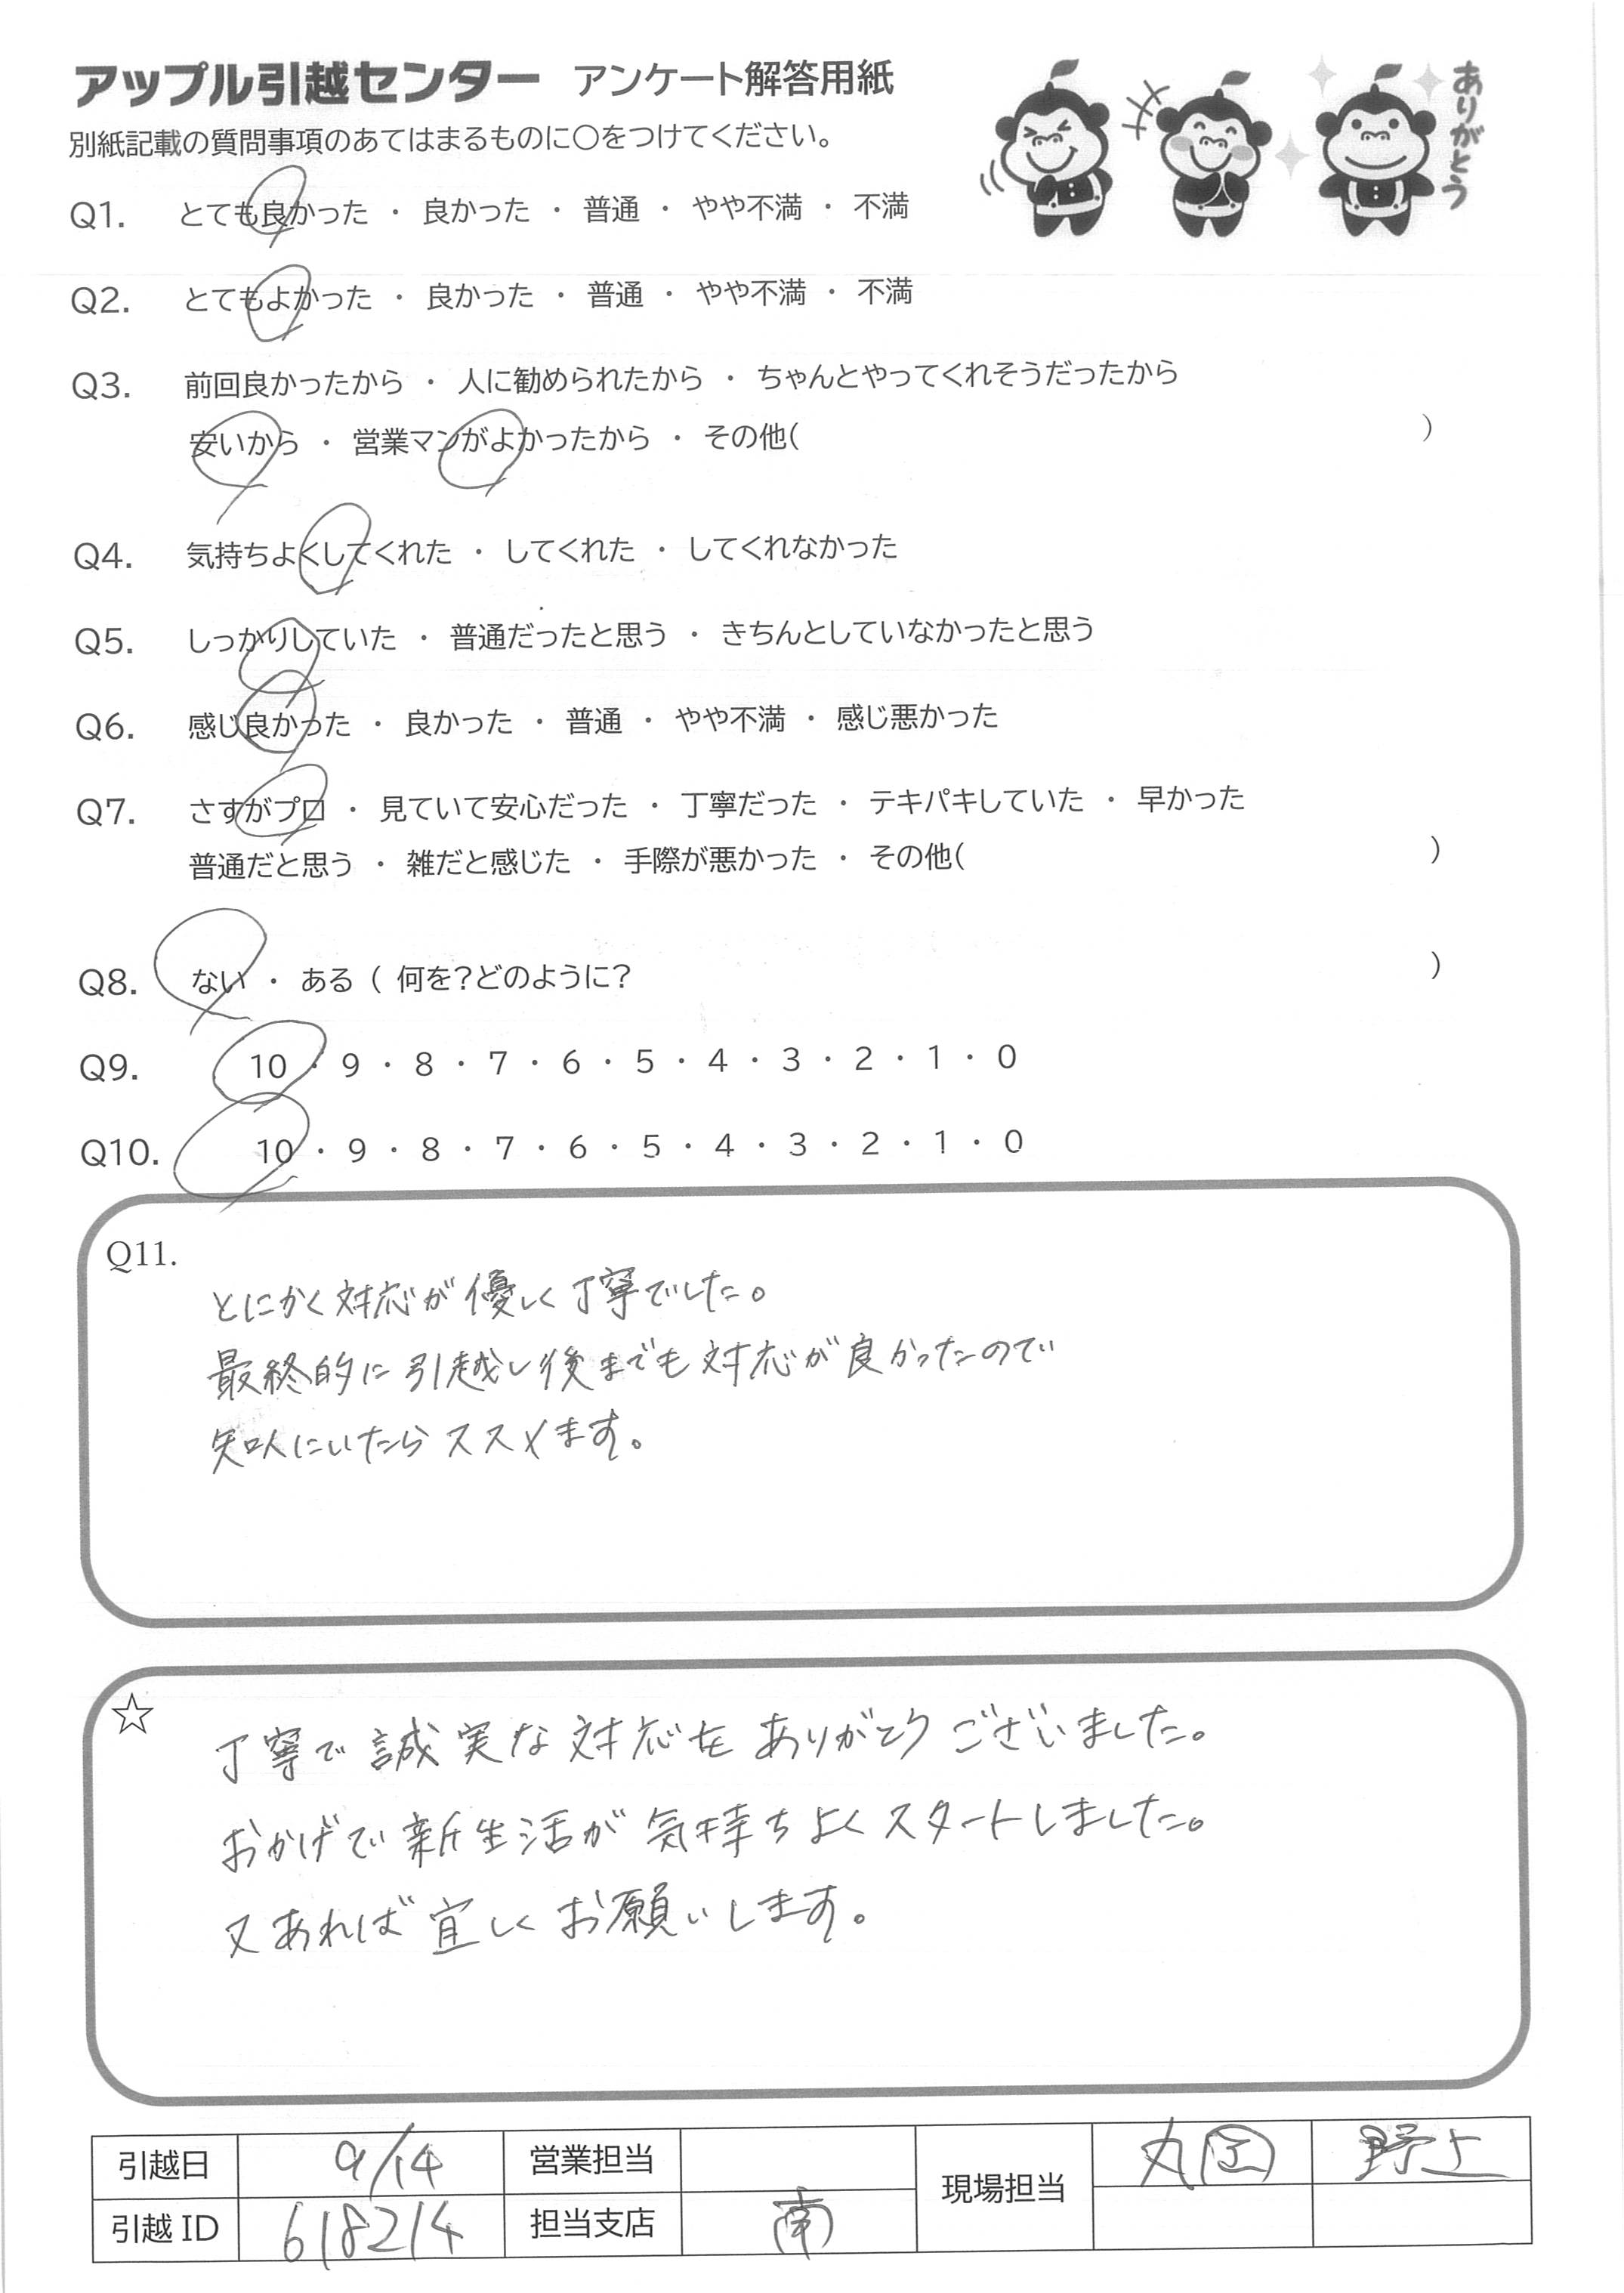 アップル引越センター アンケート解答用紙
ありがとう
別紙記載の質問事項のあてはまるものに○をつけてください。
Q1. とても良かった ・ 良かった ・ 普通 ・ やや不満 ・ 不満
Q2. とてもよかった ・ 良かった ・ 普通 ・ やや不満 ・ 不満
Q3. 前回良かったから ・ 人に勧められたから ・ ちゃんとやってくれそうだったから
安いから ・ 営業マンがよかったから ・ その他( )
Q4. 気持ちよくしてくれた ・ してくれた ・ してくれなかった
Q5. しっかりしていた ・ 普通だったと思う ・ きちんとしていなかったと思う
Q6. 感じ良かった ・ 良かった ・ 普通 ・ やや不満 ・ 感じ悪かった
Q7. さすがプロ ・ 見ていて安心だった ・ 丁寧だった ・ テキパキしていた ・ 早かった
普通だと思う ・ 雑だと感じた ・ 手際が悪かった ・ その他( )
Q8. ない ・ ある ( 何を?どのように? )
Q9. 10 ・ 9 ・ 8 ・ 7 ・ 6 ・ 5 ・ 4 ・ 3 ・ 2 ・ 1 ・ 0
Q10. 10 ・ 9 ・ 8 ・ 7 ・ 6 ・ 5 ・ 4 ・ 3 ・ 2 ・ 1 ・ 0
Q11.
とにかく対応が優しく丁寧でした。
最終的に引越し後までも対応が良かったので
知人にいたらススメます。
☆
丁寧で誠実な対応をありがとうございました。
おかげで新生活が気持ちよくスタートしました。
又あれば宜しくお願いします。
引越日 9/14 営業担当 現場担当 丸岡 野上
引越ID 618214 担当支店 南